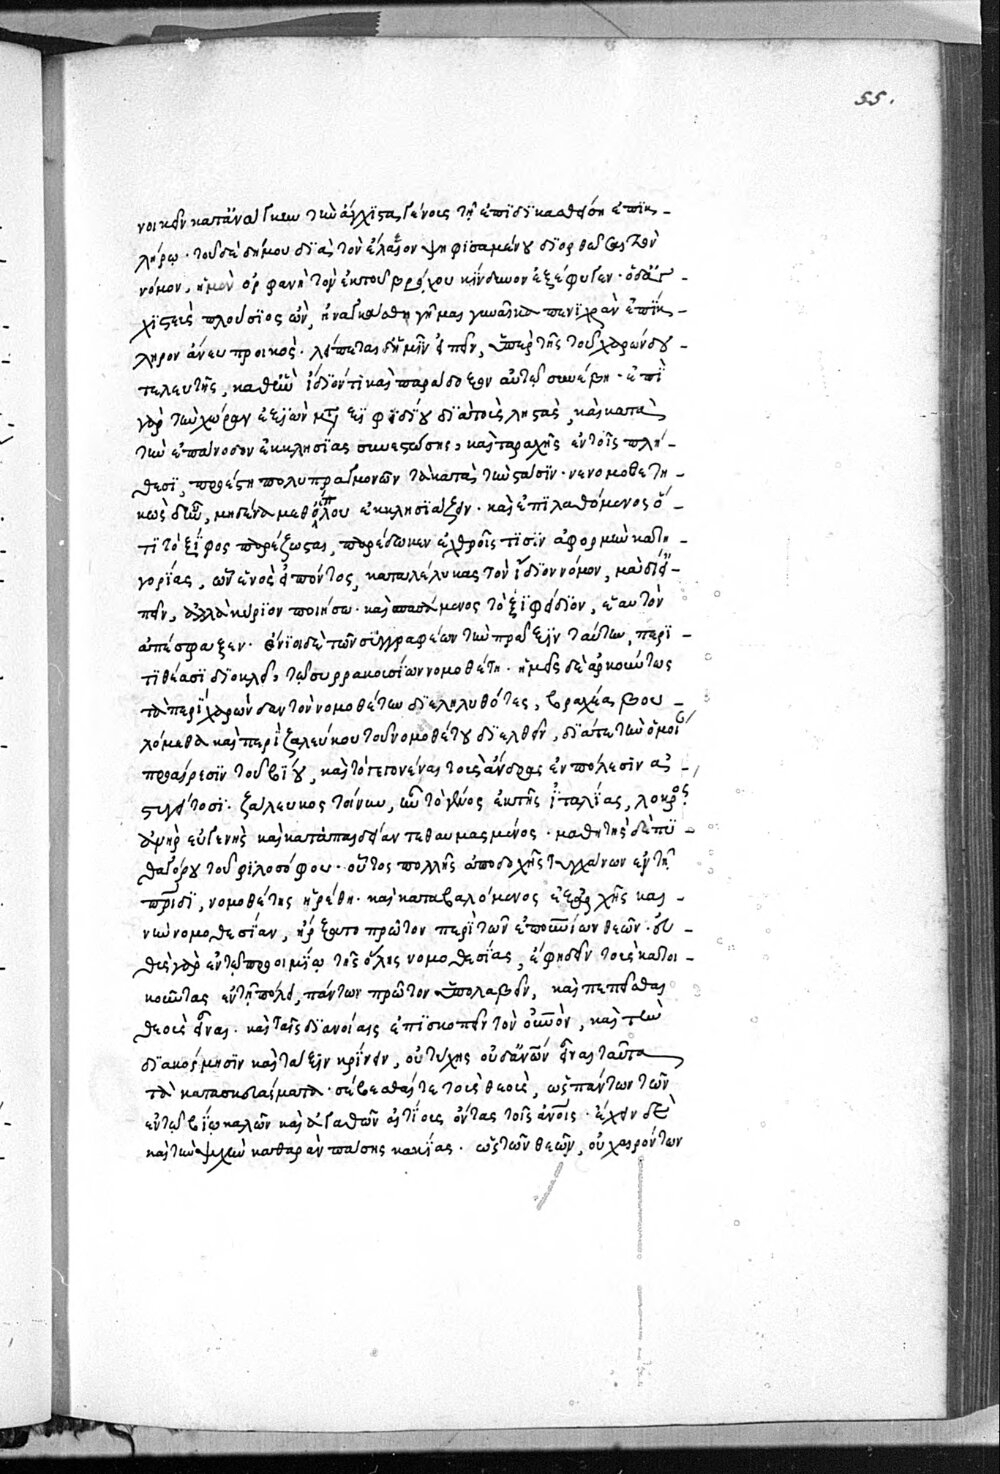 55.
νοικεῖν κατ' ἀνάγκην τῶ ἄγχιστα γένους τῆ ἐπιδικασθείση ἐπικ-
λήρω. τοῦ δὲ δήμου διὰ τὸν ἔλεον ψηφισαμένου διορθώσασθαι τὸν
νόμον, ἡ μὲν ὀρφανὴ τὸν ἐκ τοῦ βρόχου κίνδυνον ἐξέφυγεν. ὁ δὲ ἀγ-
χιστεὺς πλούσιος ὢν, ἠναγκάσθη γῆμαι γυναῖκα πενιχρὰν ἐπίκ-
ληρον ἄνευ προικὸς. λείπεται δ' ἡμῖν εἰπεῖν, ὑπὲρ τῆς τοῦ χαρώνδου
τελευτῆς, καθ' ἣν ἴδιόν τι καὶ παράδοξον αὐτῶ συνέβη. ἐπὶ
γὰρ τὴν χώραν ἐξιὼν μετὰ ξιφιδίου διὰ τοὺς ληστὰς, καὶ κατὰ
τὴν ἐπάνοδον ἐκκλησίας συνεστώσης, καὶ ταραχῆς ἐν τοῖς πλή-
θεσι, προσέστη πολυπραγμονῶν τὰ κατὰ τὴν στάσιν. νενομοθετη-
κὼς δ' ἦν, μηδένα μεθ' ὅπλου ἐκκλησιάζειν. καὶ ἐπιλαθόμενος ὅ-
τι τὸ ξίφος παρέζωσται, παρέδωκεν ἐχθροῖς τισὶν ἀφορμὴν κατη-
γορίας, ὧν ἑνὸς εἰπόντος, καταλέλυκας τὸν ἴδιον νόμον, μὰ δί' εἰ-
πεῖν, ἀλλὰ κύριον ποιήσω. καὶ σπασάμενος τὸ ξιφίδιον, ἑαυτὸν
ἀπέσφαξεν. ἔνιοι δὲ τῶν συγγραφέων τὴν πρᾶξιν ταύτην, περι-
τιθέασι διοκλεῖ, τῶ συρρακουσίων νομοθέτη. ἡμεῖς δὲ ἀρκούντως
τὰ περὶ χαρώνδαν τὸν νομοθέτην διεληλυθότες, βραχέα βου-
λόμεθα καὶ περὶ ζαλεύκου τοῦ νομοθέτου διελθεῖν, διά τε τὴν ὁμοίαν
προαίρεσιν τοῦ βίου, καὶ τὸ γεγονέναι τοὺς ἄνδρας ἐν πόλεσιν ἀσ-
τυγείτοσι. ζάλευκος τοίνυν, ἦν τὸ γένος ἐκ τῆς ἰταλίας, λοκρός.
ἀνὴρ εὐγενὴς καὶ κατὰ παιδείαν τεθαυμασμένος. μαθητὴς δὲ πυ-
θαγόρου τοῦ φιλοσόφου. οὗτος πολλῆς ἀποδοχῆς τυγχάνων ἐν τῆ
πατρίδι, νομοθέτης ἡρέθη. καὶ καταβαλόμενος ἐξ ἀρχῆς και-
νὴν νομοθεσίαν, ἤρξατο πρῶτον περὶ τῶν ἐπουρανίων θεῶν. εὐ-
θὺς γὰρ ἐν τῶ προοιμίω τῆς ὅλης νομοθεσίας, ἔφη δεῖν τοὺς κατοι-
κοῦντας ἐν τῆ πόλει, πάντων πρῶτον ὑπολαβεῖν, καὶ πεπεῖσθαι
θεοὺς εἶναι. καὶ ταῖς διανοίαις ἐπισκοπεῖν τὸν οὐρανὸν, καὶ τὴν
διακόσμησιν καὶ τάξιν κρίνειν, οὐ τύχης οὐδ' ἀνθρώπων εἶναι ταῦτα
τὰ κατασκευάσματα. σέβεσθαί τε τοὺς θεοὺς, ὡς πάντων τῶν
ἐν τῶ βίω καλῶν καὶ ἀγαθῶν αἰτίους ὄντας τοῖς ἀνθρώποις. ἔχειν δὲ
καὶ τὴν ψυχὴν καθαρὰν πάσης κακίας. ὡς τῶν θεῶν, οὐ χαιρόντων